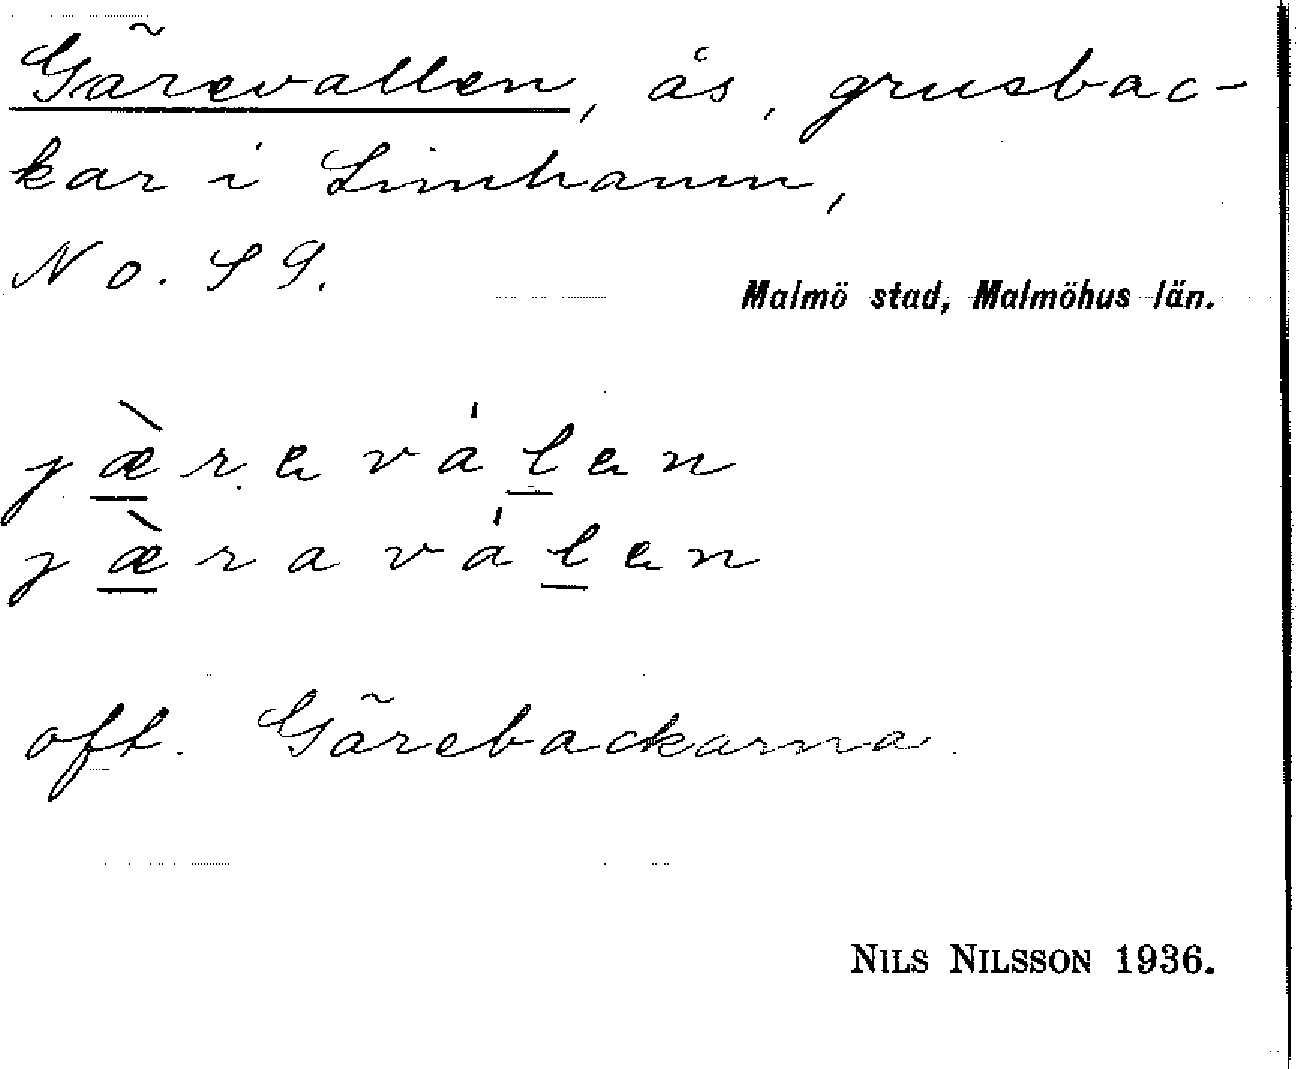 Gärevallen, ås, grusbac-
kar i Limhamn,
No. S 9.
Malmö stad, Malmöhus län.
jæ̀reválen
jæ̀raválen
oft. Gärebackarna.
NILS NILSSON 1936.